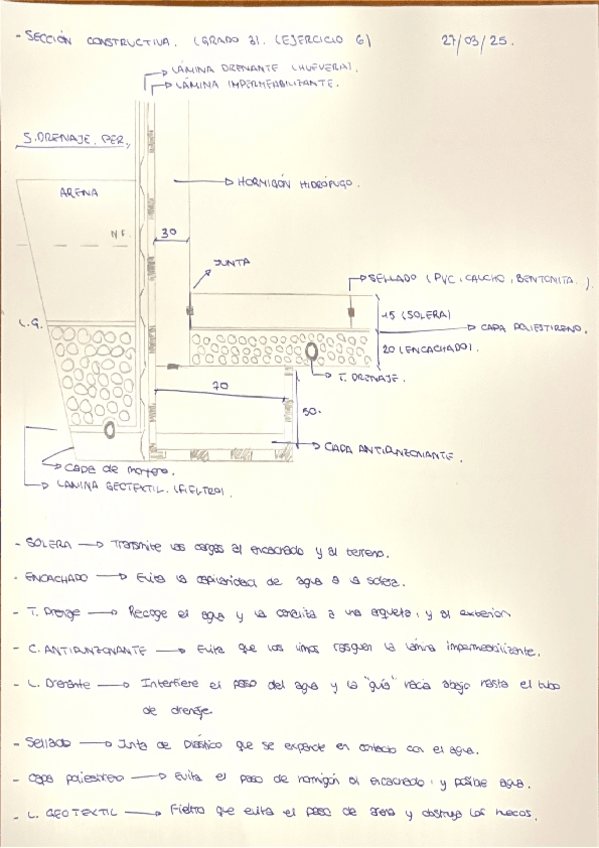 - SECCIÓN CONSTRUCTIVA. (GRADO 3). (EJERCICIO 6) 27/03/25.
LÁMINA DRENANTE (HUEVERA).
LÁMINA IMPERMEABILIZANTE.
S. DRENAJE. PER.
ARENA
HORMIGÓN HIDRÓFUGO.
N.F.
30
JUNTA
SELLADO (PVC, CAUCHO, BENTONITA..).
15 (SOLERA)
L.G.
CAPA POLIESTIRENO.
20 (ENCACHADO).
T. DRENAJE.
70
50.
CAPA ANTIPUNZONANTE.
CAPA de mortero.
LAMINA GEOTEXTIL. (FIELTRO).
- SOLERA → Transmite las cargas al encachado y al terreno.
- ENCACHADO → Evita la capilaridad de agua a la solera.
- T. Drenaje → Recoge el agua y la conduce a una arqueta, y al exterior
- C. ANTIPUNZONANTE → Evita que los limos rasguen la lámina impermeabilizante.
- L. Drenante → Interfiere el paso del agua y la "guía" hacia abajo hasta el tubo
de drenaje.
- Sellado → Junta de plástico que se expande en contacto con el agua.
- Capa poliestireno → Evita el paso de hormigón al encachado, y posible agua.
- L. GEOTEXTIL → Fieltro que evita el paso de arena y obstruya los huecos.